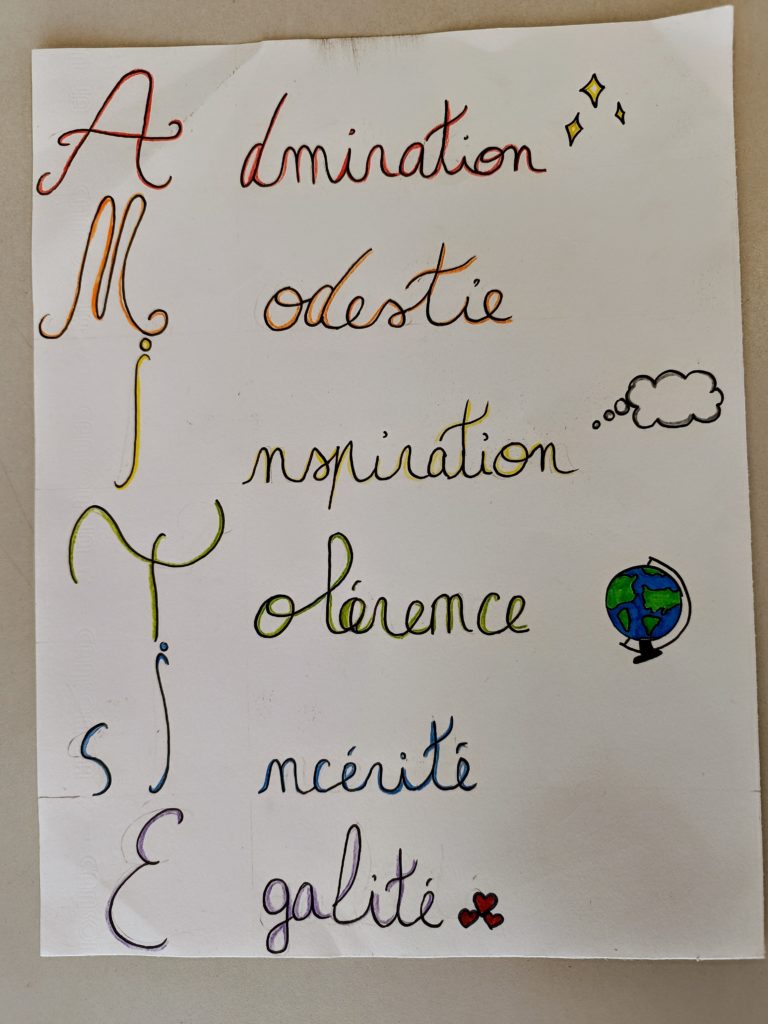 Admiration
Modestie
inspiration
Tolérence
Sincérité
Egalité